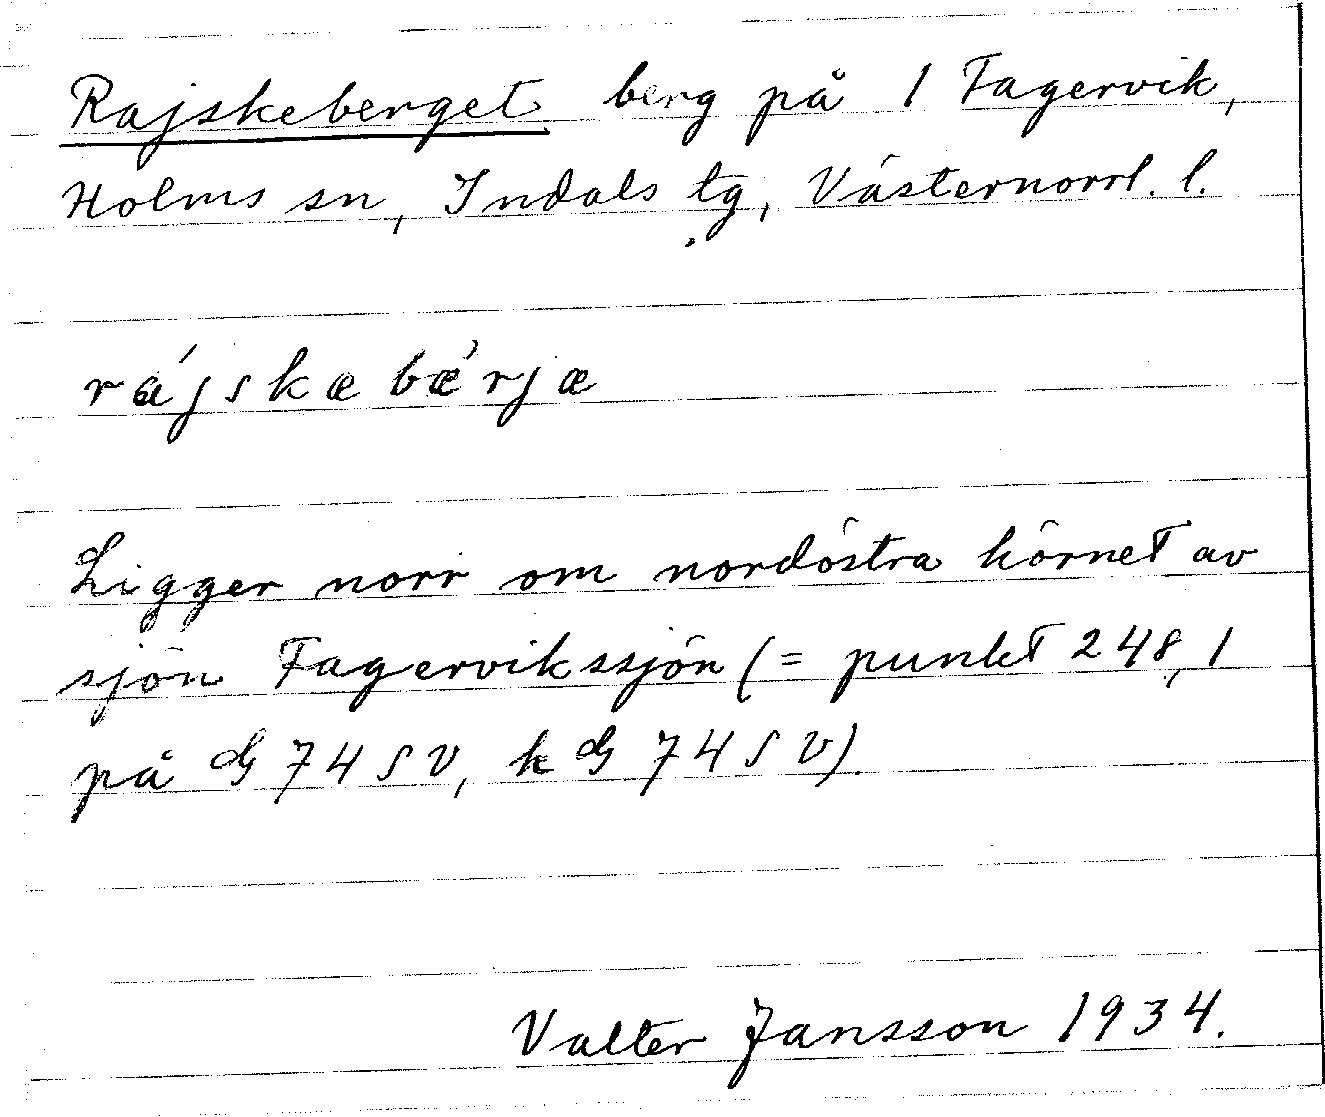 Rajskeberget berg på 1 Fagervik,
Holms sn, Indals tg, Västernorrl. l.
rájskæbǽrjæ
Ligger norr om nordöstra hörnet av
sjön Fagervikssjön (= punkt 248,1
på G 74 SV, k G 74 SV).
Valter Jansson 1934.